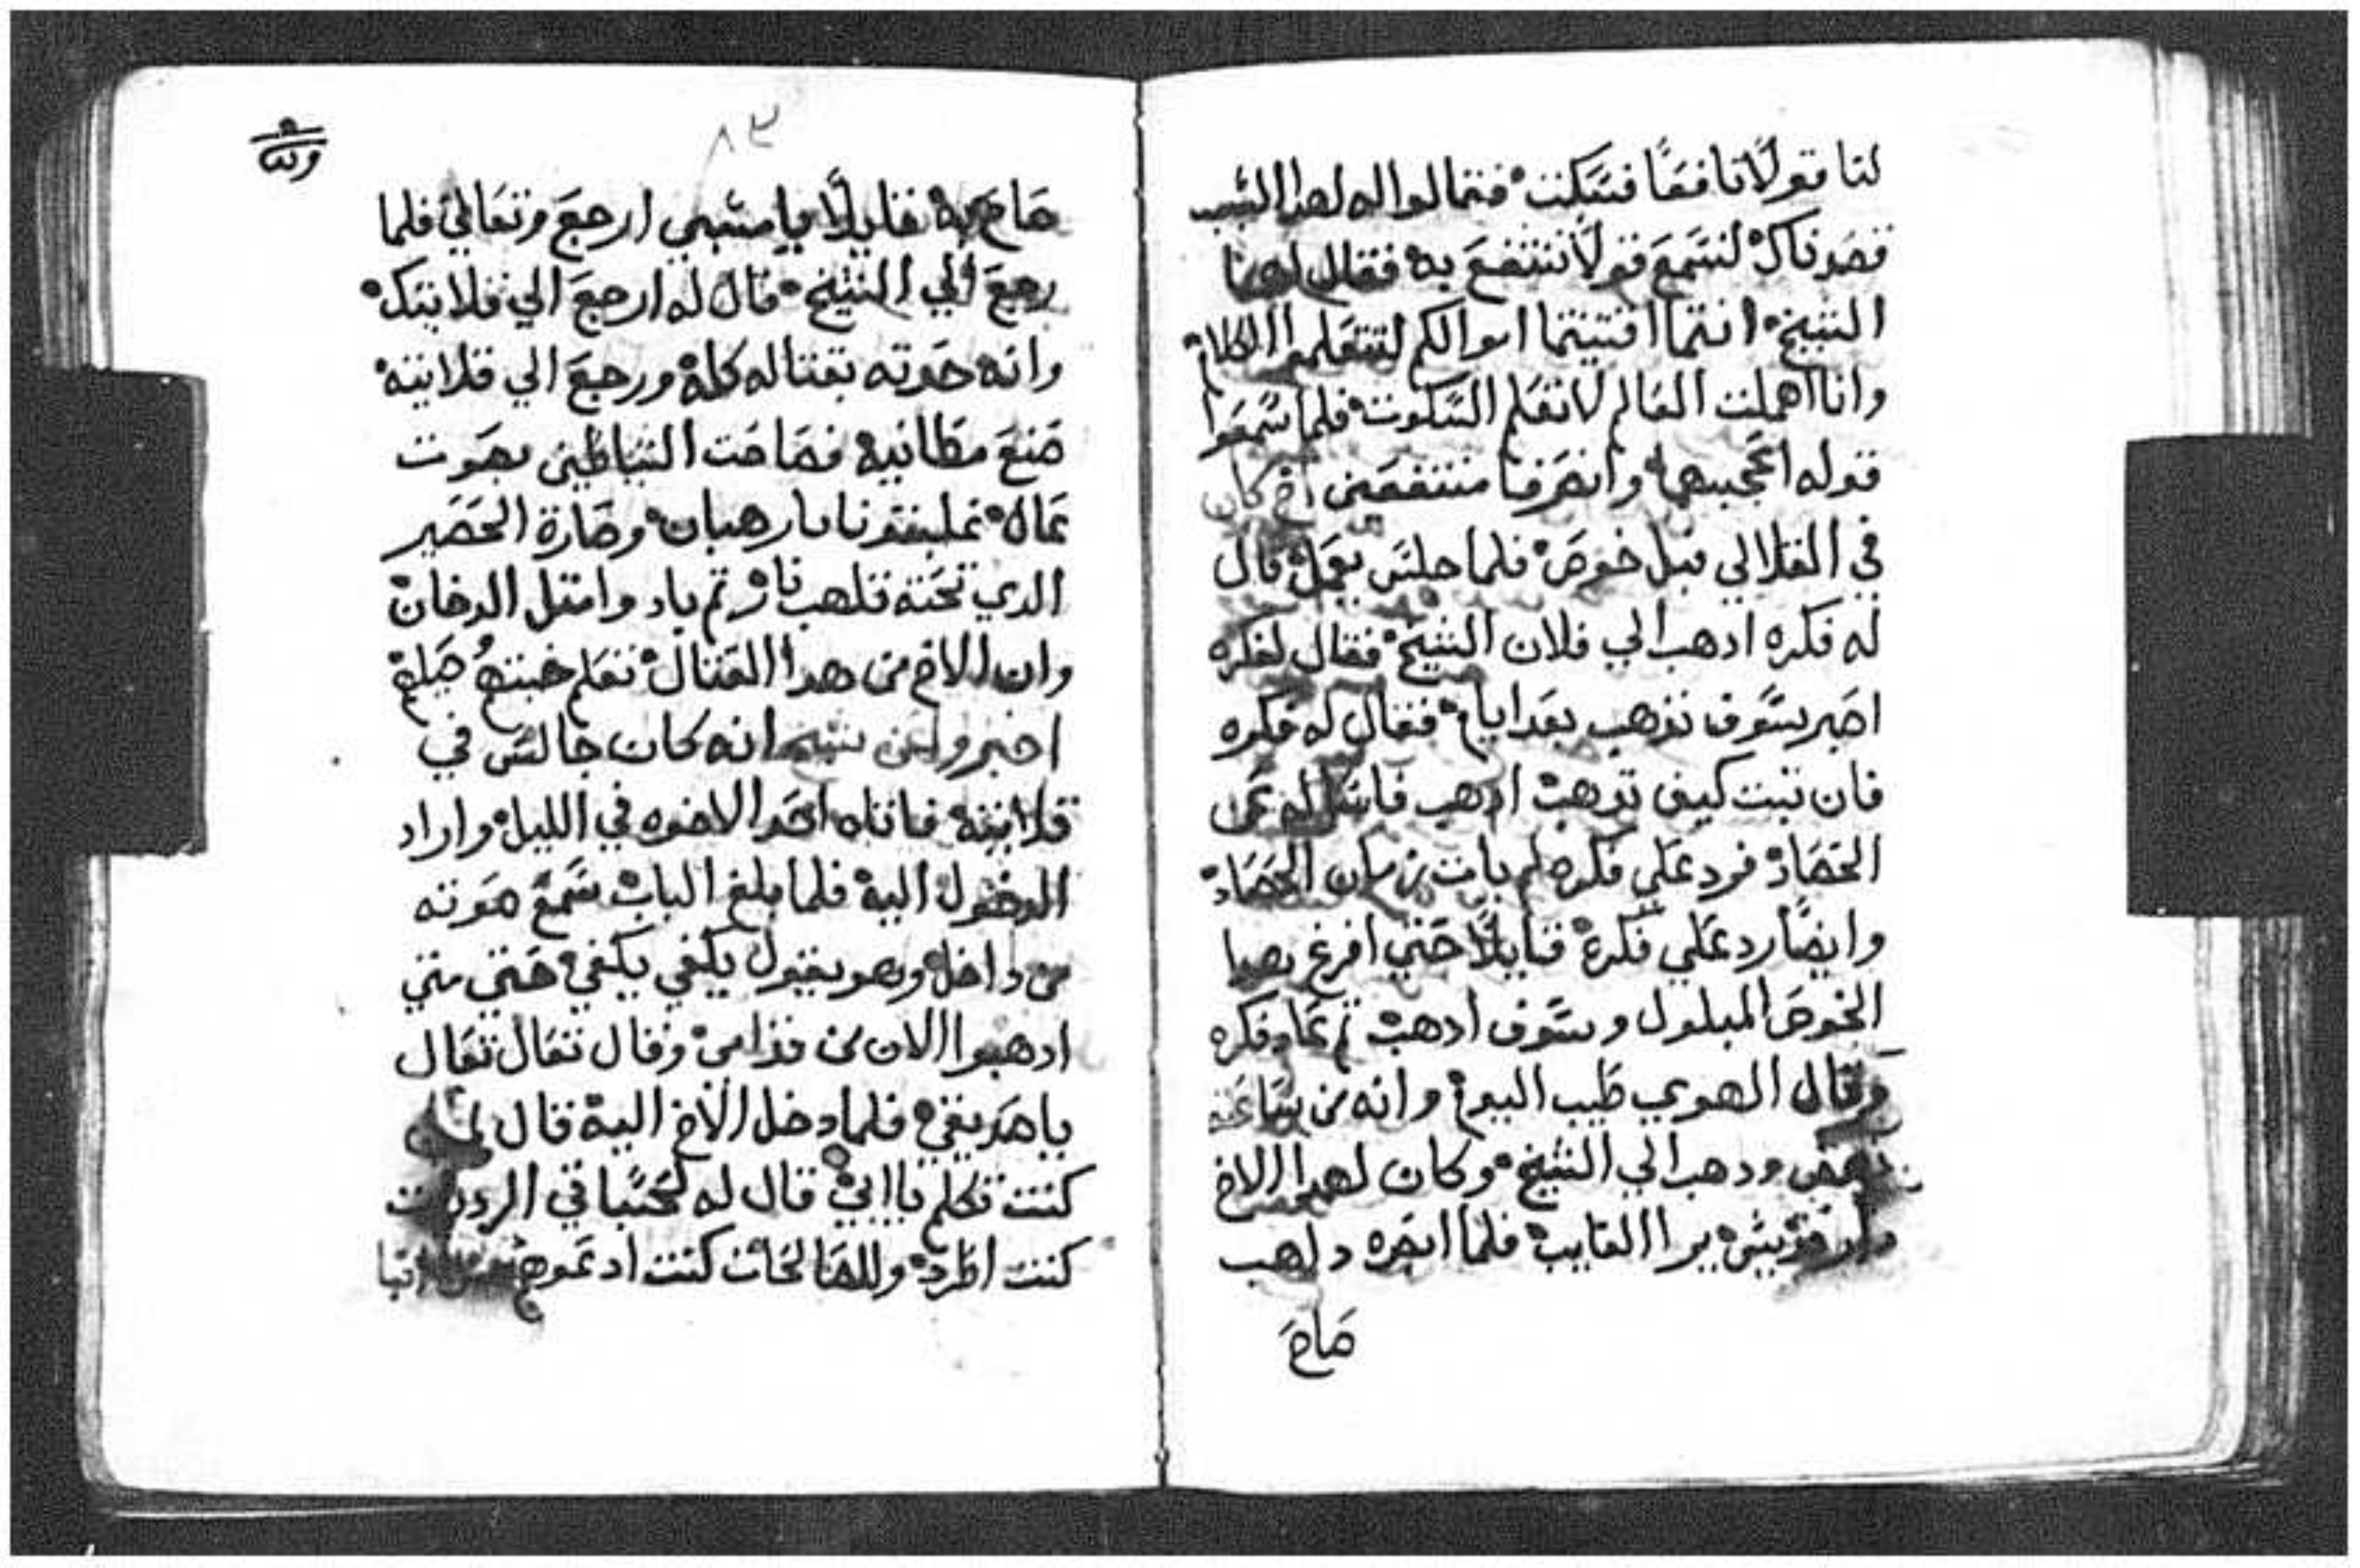 لنا قولًا نافعًا فسكت فقالوا له لهدا السبب
قصدناك لنسمع قولًا ننتفع به فقال لهما
الشيخ انتما اقتنيتما اموالكم لتتعلموا الكلام
وانا اهملت العالم لاتعلم السكوت فلما سمعوا
قوله اعجبهما وانصرفا منتفعين اخ كان
في القلالي مبل خوص فلما جلس يعمل قال
له فكره ادهب الي فلان الشيخ فقال لفكره
اصبر سوف نذهب بعد ايام فقال له فكره
فان تبت كيف تدهب ادهب فاسئل له عن
الحصاد فرد علي فكره لم يات زمان الحصاد
وايضًا رد علي فكره قايلًا حتي افرغ بهدا
الخوص المبلول وسوف ادهب ثم عاد فكره
وقال الهوي طيب اليوم وانه من ساعته
نهض ودهب الي الشيخ وكان لهدا الاخ
قديس يرا الغايب فلما ابصره داهب
صاح
٨٣
صاح به قايلًا يا مسبي ارجع وتعالي فلما
رجع الي الشيخ قال له ارجع الي قلايتك
وانه حدته بقتاله كله ورجع الي قلايته
صنع مطانيه فصاحت الشياطين بصوت
عال غلبتونا يا رهبان وصارة الحصير
الدي تحته تلهب نار ثم باد وامتل الدخان
وان الاخ من هدا القتال تعلم خبتهم حيله
اخبروا عن شيخ انه كان جالس في
قلايته فاتاه احد الاخوه في الليل واراد
الدخول اليه فلما بلغ الباب سمع صوته
من داخل وهو يقول يكفي يكفي حتي متي
ادهبوا الان من قدامي وقال تعال تعال
يا صديقي فلما دخل الاخ اليه قال
كنت تكلم يا ابي قال له لحسًبا في الرديات
كنت اطرد وللصالحات كنت ادعوهم